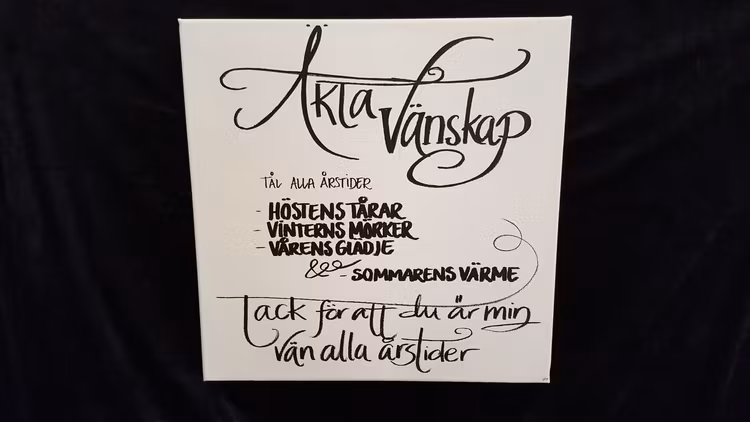 Äkta
Vänskap
TÅL ALLA ÅRSTIDER
- HÖSTENS TÅRAR
- VINTERNS MÖRKER
- VÅRENS GLÄDJE
& - SOMMARENS VÄRME
Tack för att du är min
vän alla årstider